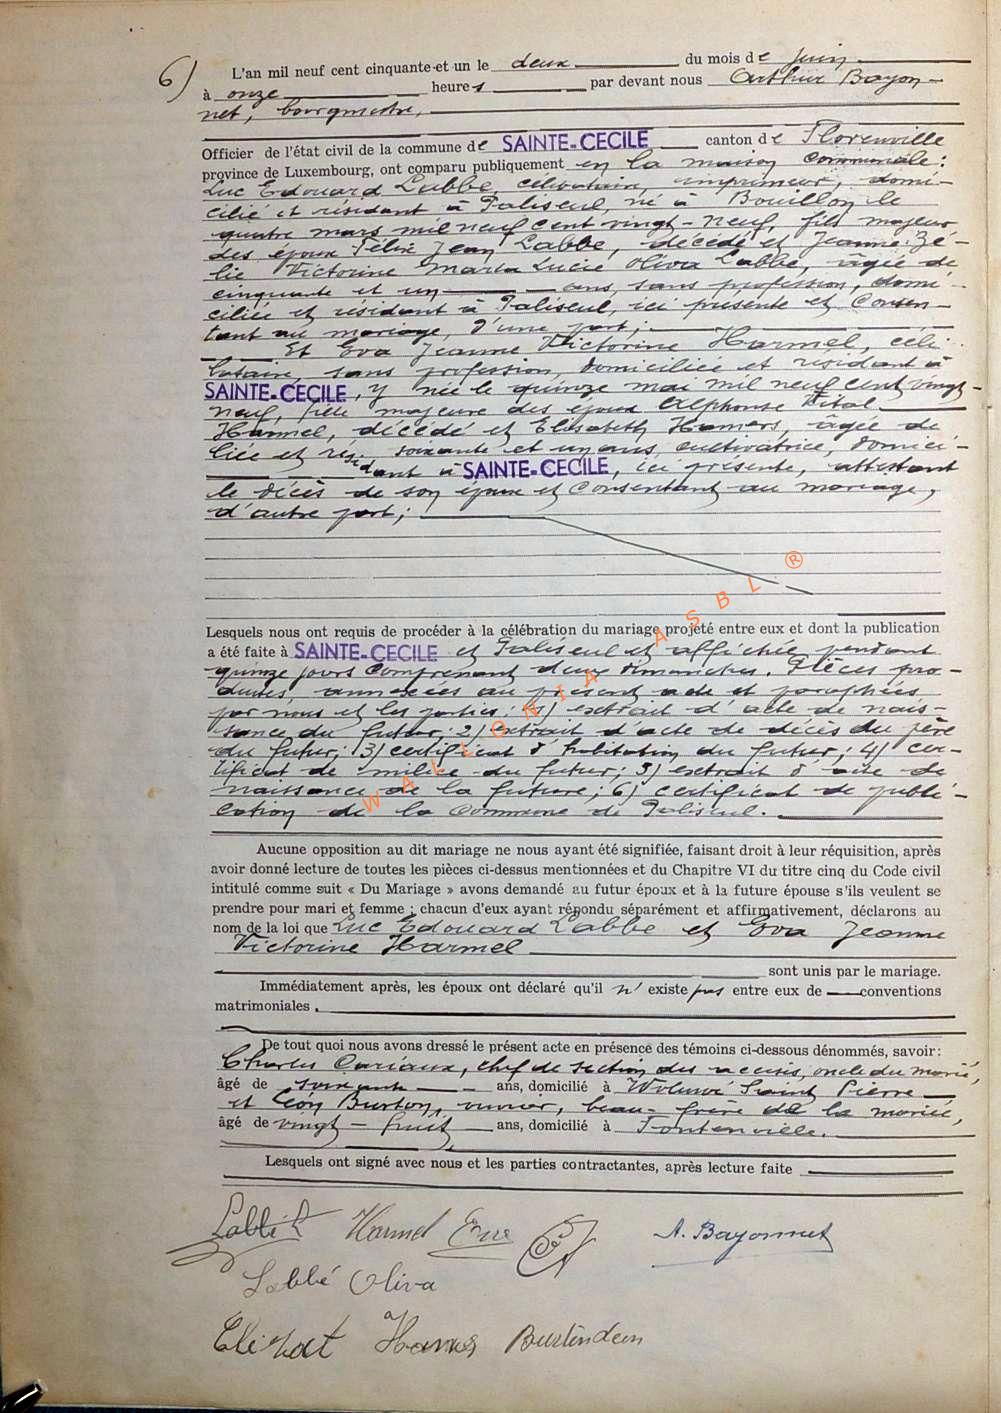 6) L'an mil neuf cent cinquante-et un le deux du mois de juin
à onze heures par devant nous Arthur Bayon-
net, bourgmestre,
Officier de l'état civil de la commune de SAINTE-CECILE canton de Florenville
province de Luxembourg, ont comparu publiquement en la maison communale :
Luc Edouard Labbe, célibataire, imprimeur, domi-
cilié et résidant à Paliseul, né à Bouillon le
quatre mars mil neuf cent vingt-neuf, fils majeur
des époux Félix Jean Labbe, décédé et Jeanne Zé-
lie Victorine Maria Lucie Oliva Labbe, âgée de
cinquante et un ans, sans profession, domi-
ciliée et résidant à Paliseul, ici présente et consen-
tant au mariage, d'une part ;
Et Eva Jeanne Victorine Harmel, céli-
bataire, sans profession, domiciliée et résidant à
SAINTE-CECILE, y née le quinze mai mil neuf cent vingt-
neuf, fille majeure des époux Alphonse Vital
Harmel, décédé et Elisabeth Hamers, âgée de
soixante et un ans, cultivatrice, domici-
liée et résidant à SAINTE-CECILE, ici présente, attestant
le décès de son époux et consentant au mariage,
d'autre part ;
Lesquels nous ont requis de procéder à la célébration du mariage projeté entre eux et dont la publication
a été faite à SAINTE-CECILE et Paliseul et affichée pendant
quinze jours comprenant deux dimanches. Pièces pro-
duites, annexées au présent acte et paraphées
par nous et les parties : 1) extrait d'acte de nais-
sance du futur ; 2) extrait d'acte de décès du père
du futur ; 3) certificat d'habitation du futur ; 4) cer-
tificat de milice du futur ; 5) extrait d'acte de
naissance de la future ; 6) certificat de publi-
cation de la commune de Paliseul.
Aucune opposition au dit mariage ne nous ayant été signifiée, faisant droit à leur réquisition, après
avoir donné lecture de toutes les pièces ci-dessus mentionnées et du Chapitre VI du titre cinq du Code civil
intitulé comme suit « Du Mariage » avons demandé au futur époux et à la future épouse s'ils veulent se
prendre pour mari et femme ; chacun d'eux ayant répondu séparément et affirmativement, déclarons au
nom de la loi que Luc Edouard Labbe et Eva Jeanne
Victorine Harmel
sont unis par le mariage.
Immédiatement après, les époux ont déclaré qu'il n'existe pas entre eux de conventions
matrimoniales.
De tout quoi nous avons dressé le présent acte en présence des témoins ci-dessous dénommés, savoir :
Charles Cariaux, chef de section des accises, oncle du marié,
âgé de soixante ans, domicilié à Woluwé Saint Pierre
et Léon Burton, ouvrier, beau-frère de la mariée,
âgé de vingt-huit ans, domicilié à Fontenoille.
Lesquels ont signé avec nous et les parties contractantes, après lecture faite
Labbé L Harmel Eva A. Bayonnet
Labbé Oliva
Elisabat Hamers
WALLONIA ASBL ®